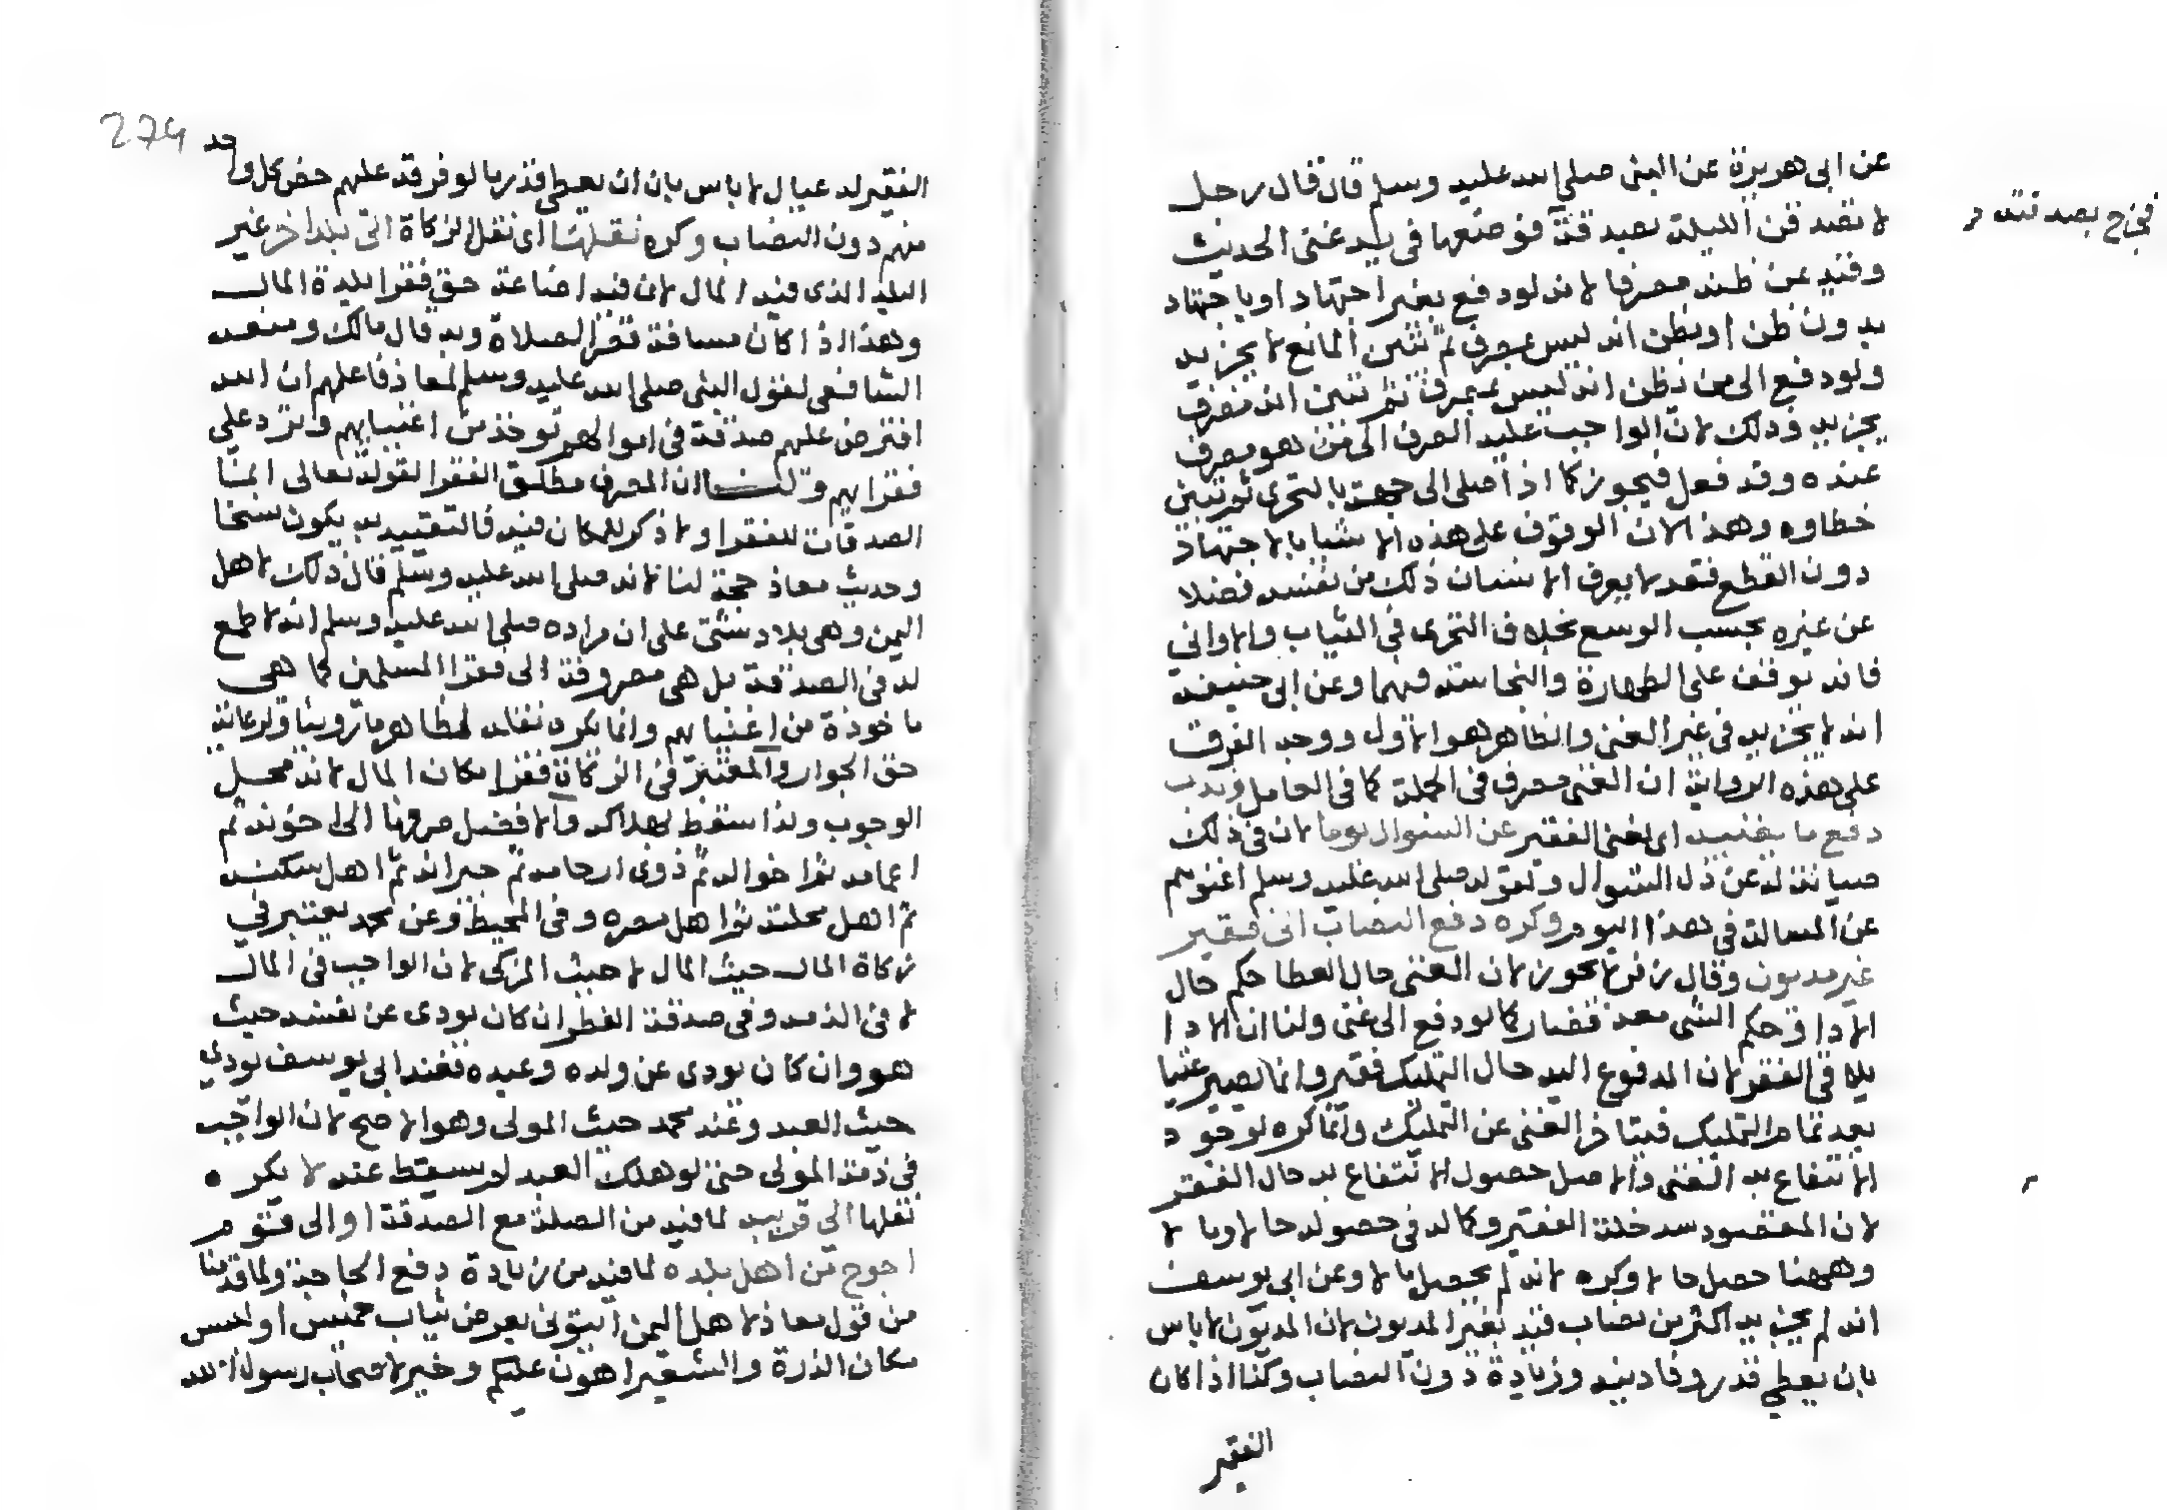 عن ابى هريرة عن النبى صلى الله عليه وسلم قال قال رجل
لا تصدقن الليلة بصدقة فوضعها فى يد غنى الحديث
فخرج بصدقته
وقيد عن ظنه مصرفا لانه لو دفع بغير اجتهاد او باجتهاد
بدون ظن او بظن انه ليس بمصرف ثم تبين المانع لا يجزيه
ولو دفع الى من يظن انه ليس بمصرف ثم تبين انه مصرف
يجزيه وذلك لان الواجب عليه الصرف الى من هو مصرف
عنده وقد فعل فيجوز كما اذا صلى الى جهة بالتحرى ثم تبين
خطاوه وهذا لان الوقوف على هذه الاشيا بالاجتهاد
دون القطع فقد لا يعرف الانسان ذلك من نفسه فضلا
عن غيره بحسب الوسع بخلاف التحرى فى الثياب والاوانى
فانه يوقف على الطهارة والنجاسة فيهما وعن ابى حنيفة
انه لا يجزيه فى غير الغنى والظاهر هو الاول ووجه الفرق
على هذه الرواية ان الغنى مصرف فى الجملة كما فى العامل وندب
دفع ما يغنيه اى يغنى الفقير عن السوال يوما لان فى ذلك
صيانة له عن ذل السوال ولقوله صلى الله عليه وسلم اغنوهم
عن المسالة فى هذا اليوم وكره دفع النصاب الى فقير
غير مديون وقال زفر لا يجوز لان الغنى حال العطا حكم حال
الادا وحكم الشى معه فصار كما لو دفع الى غنى ولنا ان الادا
يلاقى الفقر لان المدفوع اليه حال التمليك فقير وانما يصير غنيا
بعد تمام التمليك فيتاخر الغنى عن التمليك وانما كره لوجود
الانتفاع به الغنى والاصل حصول الانتفاع به حال الفقر
لان المقصود سد خلة الفقير وكماله فى حصوله حالا ومالا
وههنا حصل حالا وكره لانه لم يحصل مالا وعن ابى يوسف
انه لم يجز به اكثر من نصاب قيد بغير المديون لان المديون لا باس
بان يعطى قدر وفا دينه وزيادة دون النصاب وكذا اذا كان
الفقير
274
الفقير له عيال لا باس بان يعطى قدر ما لو فرقه عليهم خص كل واحد
منهم دون النصاب وكره نقلها اى نقل الزكاة الى بلد اخر غير
البلد الذى فيه المال لان فيه اضاعة حق فقرا بلدة المال
وهذا اذا كان مسافة قصر الصلاة وبه قال مالك ومنعه
الشافعى لقول النبى صلى الله عليه وسلم لمعاذ فاعلهم ان الله
افترض عليهم صدقة فى اموالهم توخذ من اغنيايهم وترد على
فقرايهم ولنا ان المصرف مطلق الفقرا لقوله تعالى انما
الصدقات للفقرا ولا ذكر للمكان فيه فالتقييد به يكون نسخا
وحديث معاذ حجة لنا لانه صلى الله عليه وسلم قال ذلك لاهل
اليمن وهى بلاد شتى على ان مراده صلى الله عليه وسلم انه لا طمع
له فى الصدقة بل هى مصروفة الى فقرا المسلمين كما هى
ماخوذة من اغنيايهم وانما يكره نقله لظاهر ما روينا ولرعاية
حق الجوار والمعتبر فى الزكاة فقرا مكان المال لانه محل
الوجوب ولذا سقط بهلاكه والافضل صرفها الى اخوته ثم
اعمامه ثم اخواله ثم ذوى ارحامه ثم جيرانه ثم اهل سكنه
ثم اهل محلته ثم اهل مصره وفى المحيط وعن محمد يعتبر فى
زكاة المال حيث المال لا حيث المزكى لان الواجب فى المال
لا فى الذمة وفى صدقة الفطر ان كان يودى عن نفسه حيث
هو وان كان يودى عن ولده وعبده فعند ابى يوسف يودى
حيث العبد وعند محمد حيث المولى وهو الاصح لان الواجب
فى ذمة المولى حتى لو هلك العبد لم يسقط عنه لا يكره
نقلها الى قريب لما فيه من الصلة مع الصدقة او الى قوم
احوج من اهل بلده لما فيه من زيادة دفع الحاجة ولما قدمنا
من قول معاذ لاهل اليمن ايتونى بعرض ثياب خميس او لبيس
مكان الذرة والشعير اهون عليكم وخير لاصحاب رسول الله